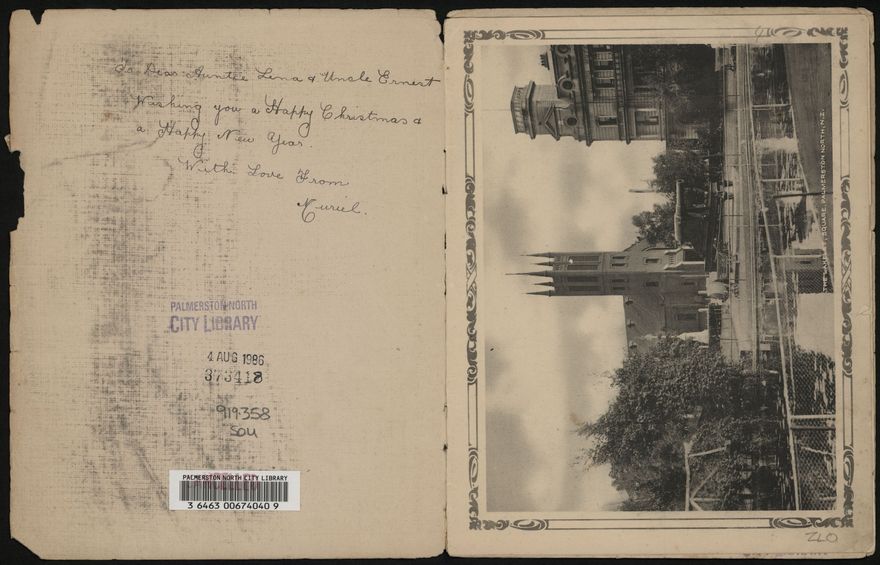 To Dear Auntie Lena & Uncle Ernest
Wishing you a Happy Christmas &
a Happy New Year.
With Love From
Muriel.
PALMERSTON NORTH
CITY LIBRARY
4 AUG 1986
373418
919.358
SOU
PALMERSTON NORTH CITY LIBRARY
3 6463 00674040 9
SQUARE, PALMERSTON NORTH, N.Z.